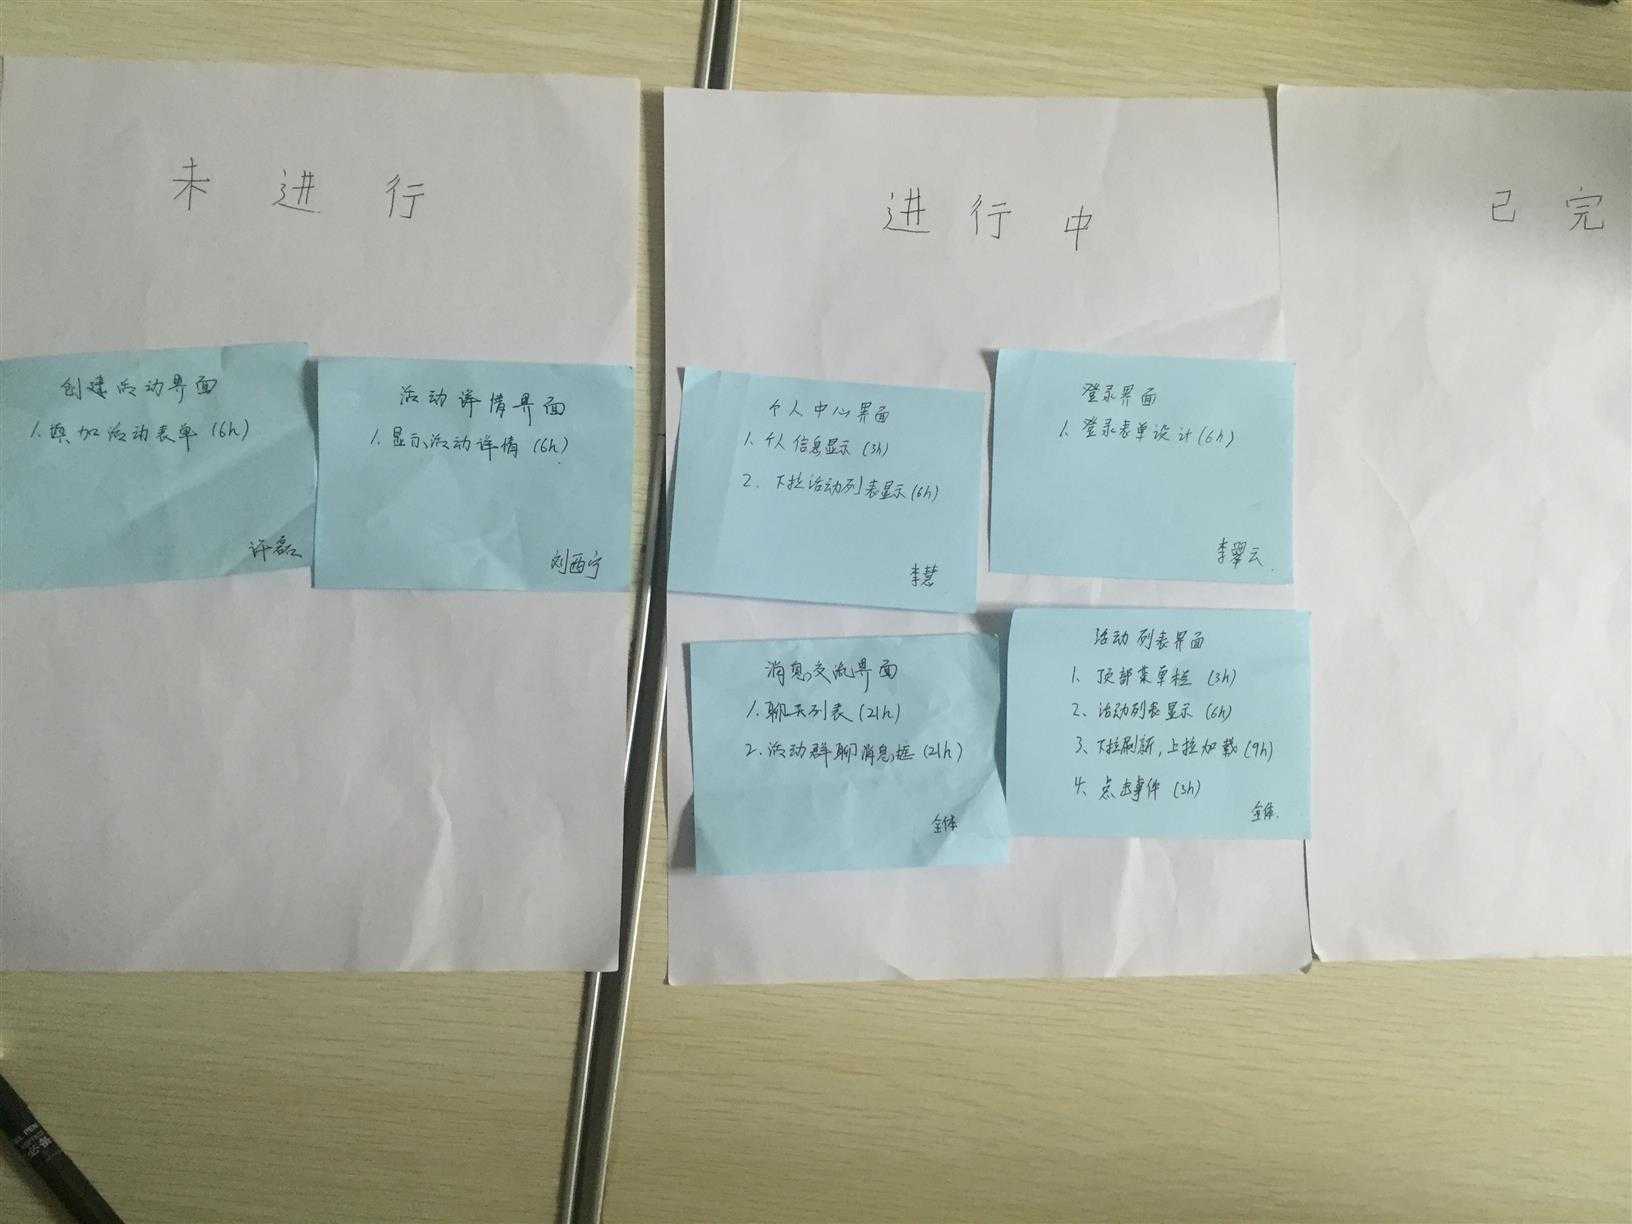 未进行
进行中
已完
创建活动界面
1.填加活动表单(6h)
许磊
活动详情界面
1.显示活动详情(6h)
刘西宁
个人中心界面
1.个人信息显示(3h)
2.下拉活动列表显示(6h)
李慧
登录界面
1.登录表单设计(6h)
李翠云
消息交流界面
1.聊天列表(21h)
2.活动群聊消息框(21h)
全体
活动列表界面
1、顶部菜单栏(3h)
2、活动列表显示(6h)
3、下拉刷新,上拉加载(9h)
4、点击事件(3h)
全体.